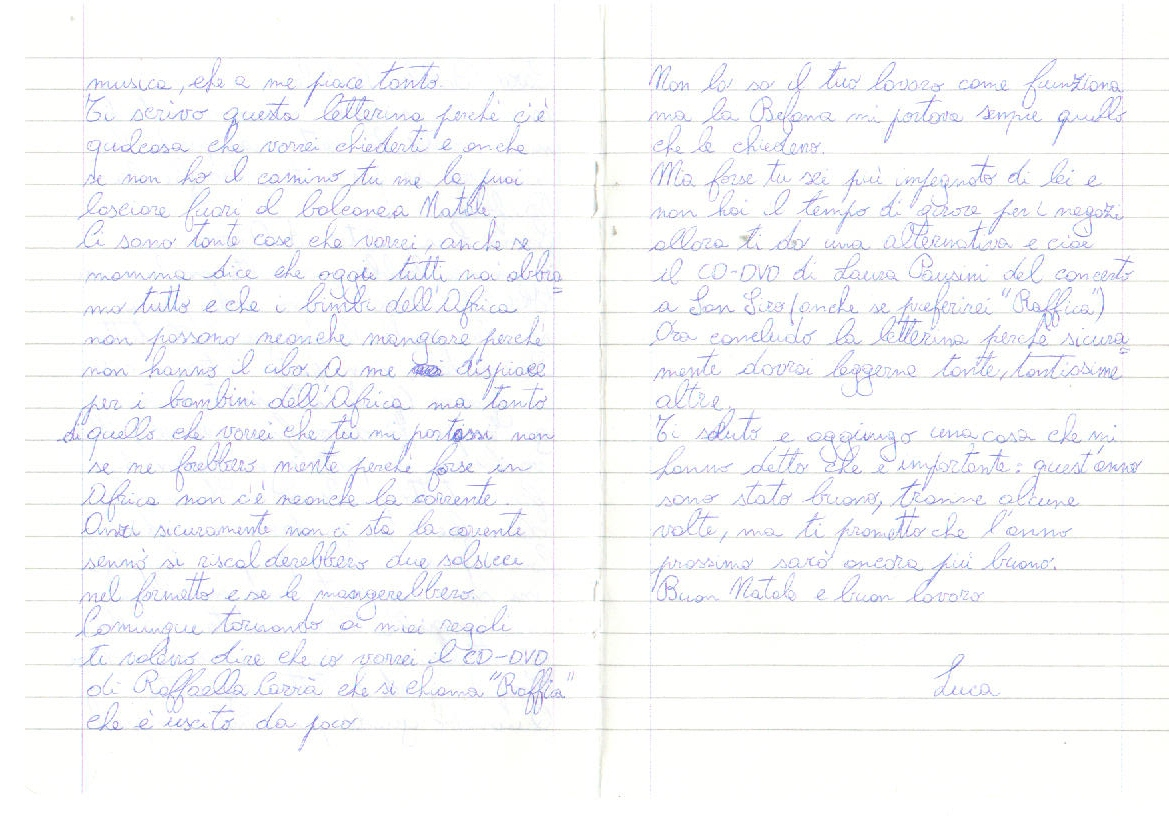 musica, che a me piace tanto.
Ti scrivo questa letterina perché c'è
qualcosa che vorrei chiederti e anche
se non ho il camino tu me la puoi
lasciare fuori al balcone a Natale.
Ci sono tante cose che vorrei, anche se
mamma dice che oggi tutti noi abbia
mo tutto e che i bimbi dell'Africa
non possono neanche mangiare perché
non hanno il cibo. A me dispiace
per i bambini dell'Africa ma tanto
di quello che vorrei che tu mi portassi non
se ne farebbero niente perché forse in
Africa non c'è neanche la corrente.
Anzi sicuramente non ci sta la corrente
sennò si riscalderebbero due salsicce
nel fornetto e se le mangerebbero.
Comunque tornando ai miei regali
ti volevo dire che io vorrei il CD-DVD
di Raffaella Carrà che si chiama "Raffica"
che è uscito da poco.
Non lo so il tuo lavoro come funziona
ma la Befana mi portava sempre quello
che le chiedevo.
Ma forse tu sei più impegnato di lei e
non hai il tempo di girare per i negozi
allora ti do una alternativa e cioè
il CD-DVD di Laura Pausini del concerto
a San Siro (anche se preferirei "Raffica")
Ora concludo la letterina perché sicura
mente dovrai leggerne tante, tantissime
altre.
Ti saluto e aggiungo una cosa che mi
hanno detto che è importante: quest'anno
sono stato buono, tranne alcune
volte, ma ti prometto che l'anno
prossimo sarò ancora più buono.
Buon Natale e buon lavoro
Luca